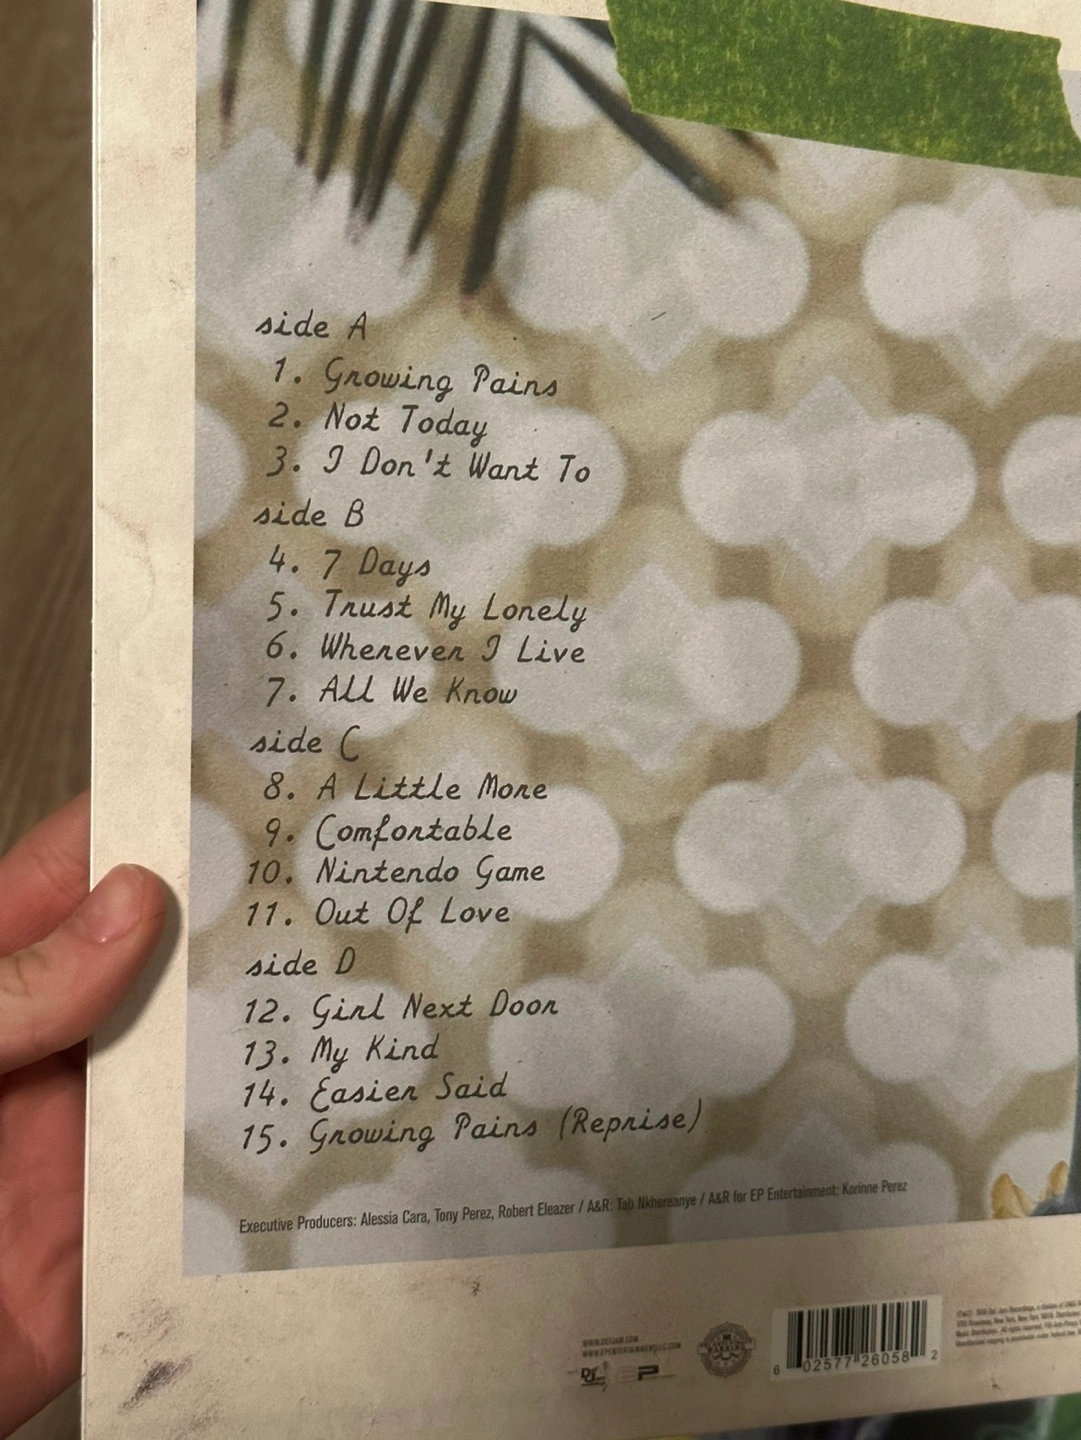 side A
1. Growing Pains
2. Not Today
3. I Don't Want To
side B
4. 7 Days
5. Trust My Lonely
6. Wherever I Live
7. All We Know
side C
8. A Little More
9. Comfortable
10. Nintendo Game
11. Out Of Love
side D
12. Girl Next Door
13. My Kind
14. Easier Said
15. Growing Pains (Reprise)
Executive Producers: Alessia Cara, Tony Perez, Robert Eleazer / A&R: Tab Nkhereanye / A&R for EP Entertainment: Korinne Perez
WWW.DEFJAM.COM
WWW.EPENTERTAINMENTLLC.COM
Def Jam
EP
6 02577 26058 2